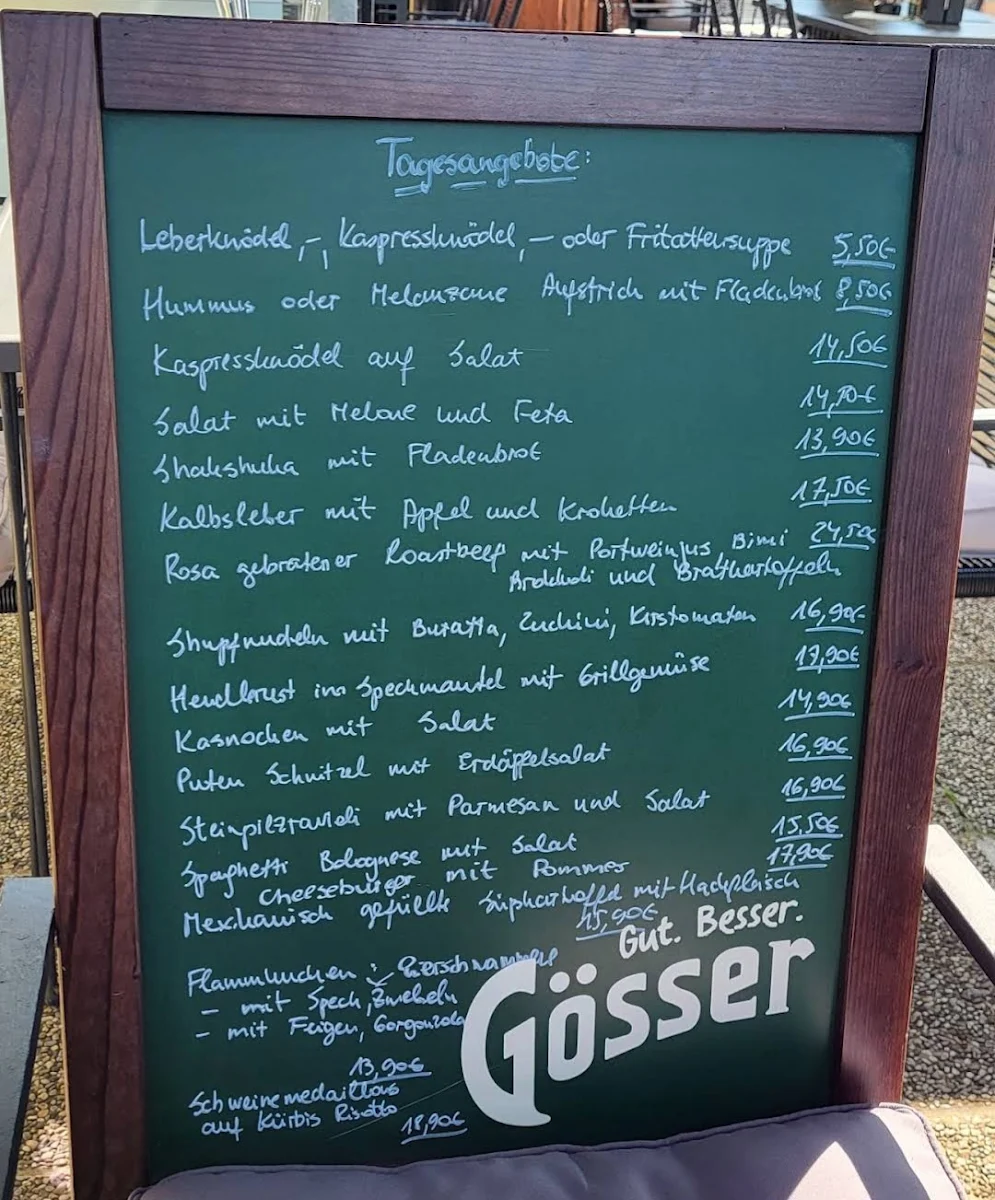 Tagesangebote:
Leberknödel,-, Kaspressknödel,- oder Fritattensuppe 5,50€
Hummus oder Melanzane Aufstrich mit Fladenbrot 8,50€
Kaspressknödel auf Salat 14,50€
Salat mit Melone und Feta 14,70€
Shakshuka mit Fladenbrot 13,90€
Kalbsleber mit Apfel und Kroketten 17,50€
Rosa gebratener Roastbeef mit Portweinjus, Bimi 24,50€
Brokkoli und Bratkartoffeln
Shupfnudeln mit Buratta, Zuchini, Kirstomaten 16,90€
Hendlbrust im Speckmantel mit Grillgemüse 17,90€
Kasnocken mit Salat 14,90€
Puten Schnitzel mit Erdäpfelsalat 16,90€
Steinpilzravioli mit Parmesan und Salat 16,90€
Spaghetti Bolognese mit Salat 15,50€
Cheeseburger mit Pommes 17,90€
Mexikanisch gefüllte Süpkartoffel mit Hackfleisch
15,90€
Gut. Besser.
Gösser
Flammkuchen:
- mit Speck, Zwiebeln
- mit Feigen, Gorgonzola
13,90€
Schweinemedaillons
auf Kürbis Risotto
18,90€